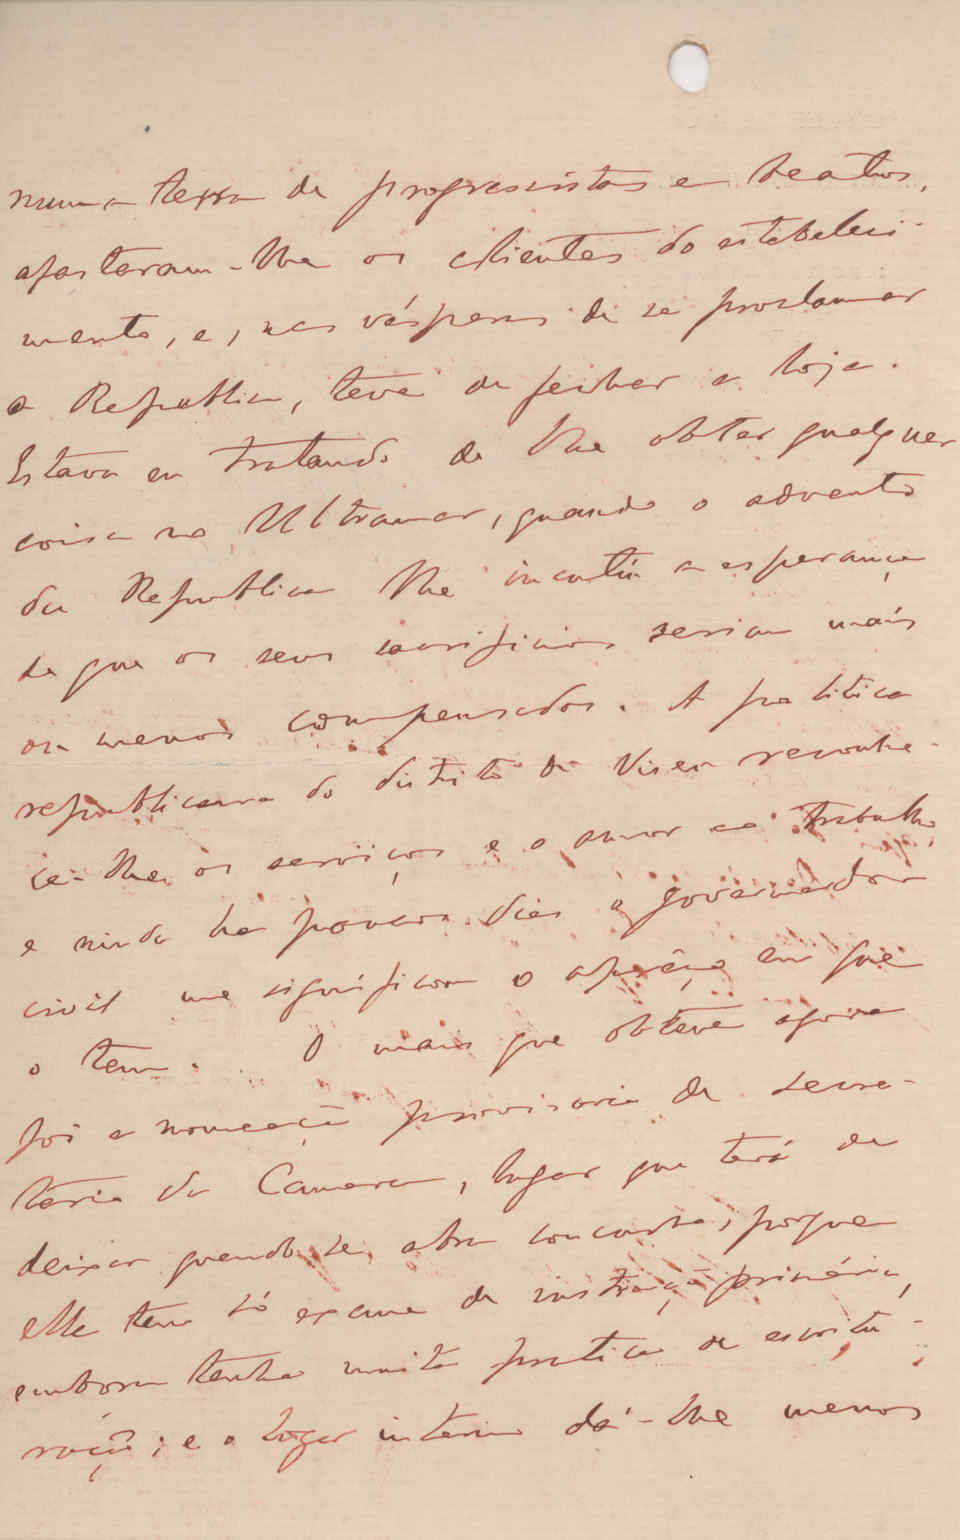 numa terra de progressistas e beatos,
afastaram-lhe os clientes do estabeleci-
mento, e, nas vésperas de se proclamar
a Republica, teve de fechar a loja.
Estava eu tratando de lhe obter qualquer
coisa no Ultramar, quando o advento
da Republica lhe incutiu a esperança
de que os seus sacrificios seriam mais
ou menos compensados. A politica
republicana do distrito de Viseu reconhe-
ce-lhe os serviços e o amor ao trabalho,
e ainda ha poucos dias o governador
civil me significou o apreço em que
o tem. O mais que obteve agora
foi a nomeação provisoria de secre-
tario da Camara, lugar que terá de
deixar quando se abra concurso, porque
elle tem só exame de instrução primária,
embora tenha muita pratica de escritu-
ração; e o logar interino dá-lhe menos